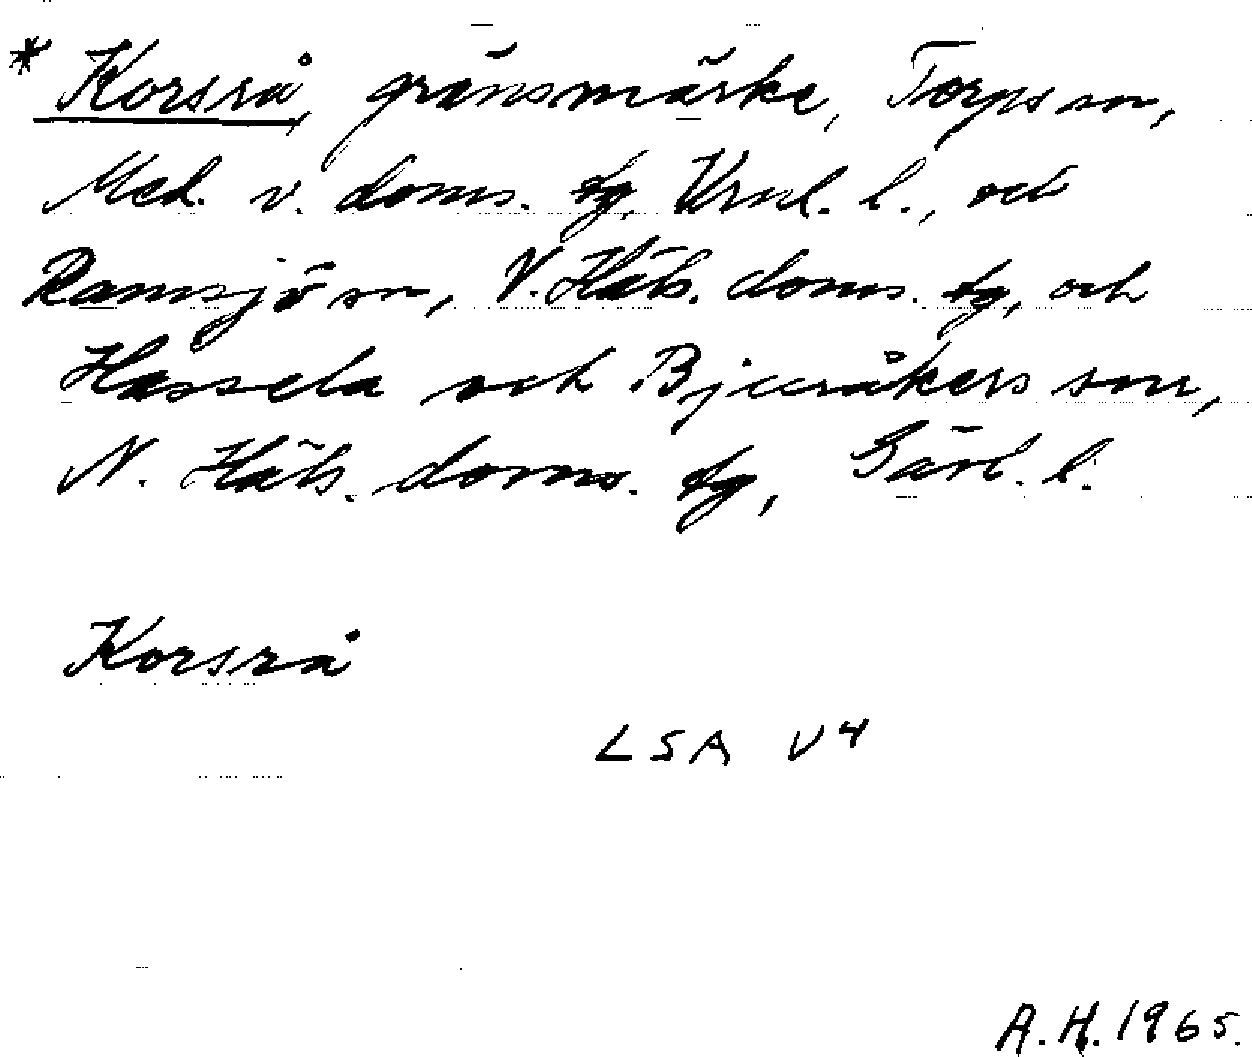 * Korsrå, gränsmärke, Torps sn,
Med. v. doms. tg, Vrnl. l., och
Ramsjö sn, V. Häls. doms. tg, och
Hassela och Bjuråkers snr,
N. Häls. doms. tg, Gävl. l.
Korsrå
LSA V4
A.H. 1965.